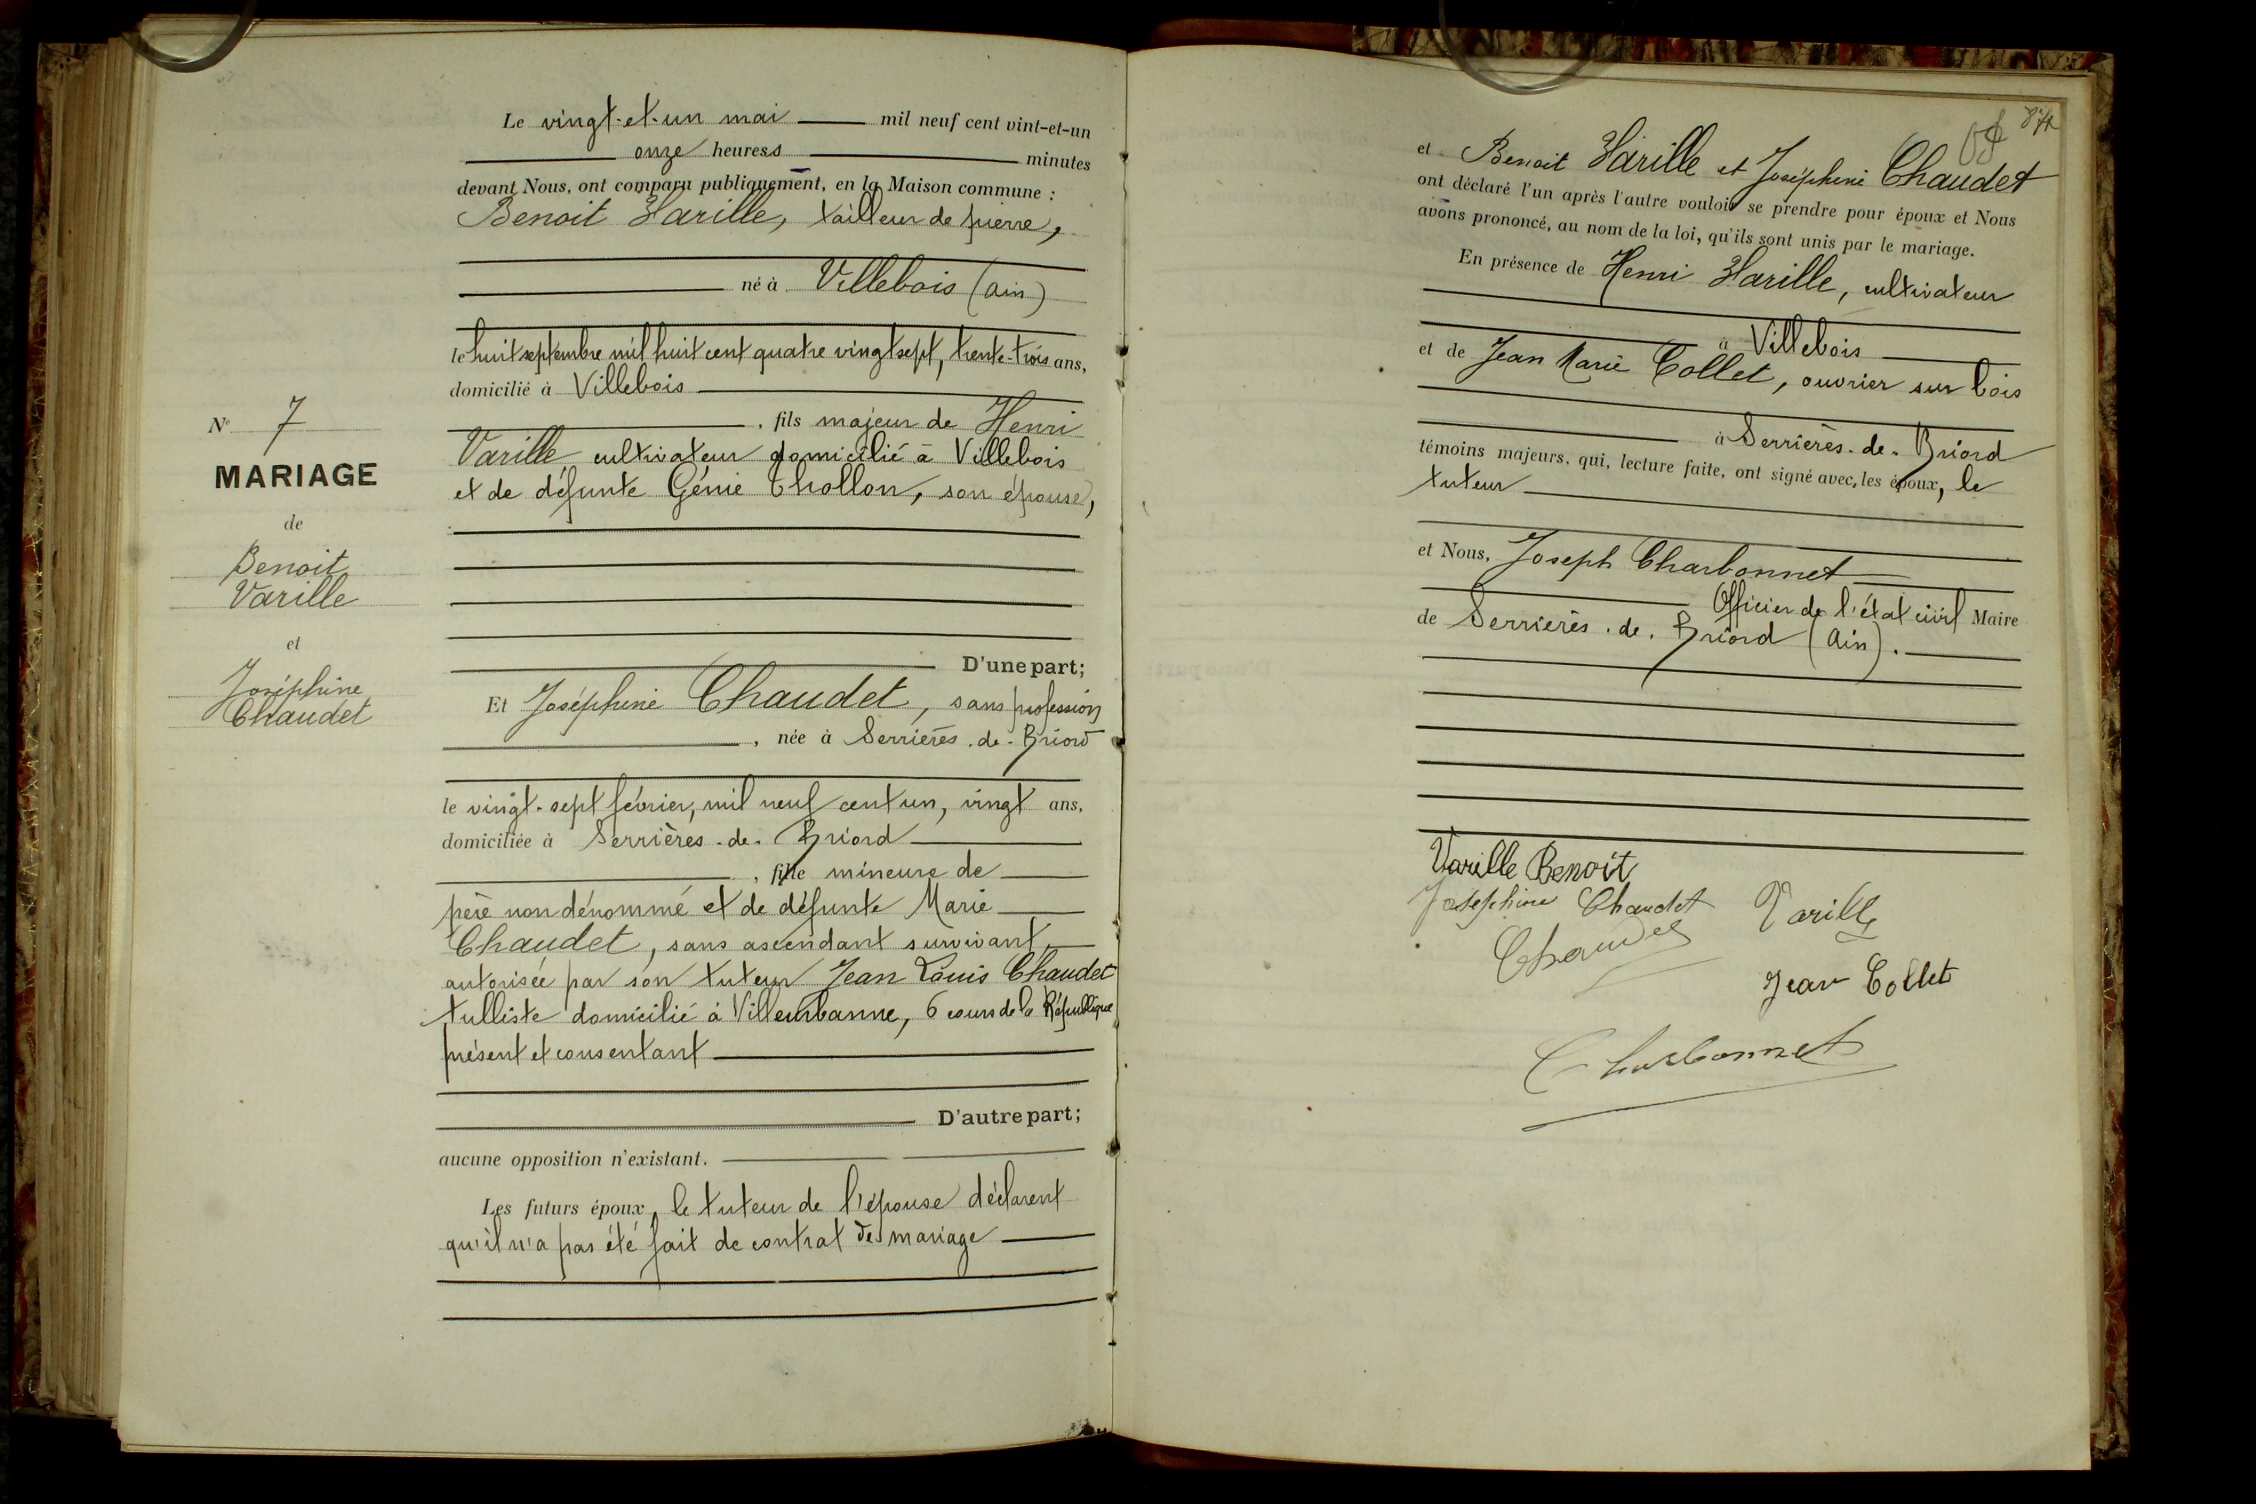 Le vingt-et-un mai mil neuf cent vint-et-un
onze heuress minutes
devant Nous, ont comparu publiquement, en la Maison commune :
Benoit Varille, tailleur de pierre,
né à Villebois (Ain)
le huit septembre mil huit cent quatre vingt sept, trente-trois ans,
domicilié à Villebois
, fils majeur de Henri
Varille cultivateur domicilié à Villebois
et de défunte Génie Thollon, son épouse,
D'une part;
Et Joséphine Chaudet, sans profession
, née à Serrières-de-Briord
le vingt-sept février, mil neuf cent un, vingt ans,
domiciliée à Serrières-de-Briord
, fille mineure de
père non dénommé et de défunte Marie
Chaudet, sans ascendant survivant,
autorisée par son tuteur Jean Louis Chaudet
tulliste domicilié à Villeurbanne, 6 cours de la République
présent et consentant
D'autre part;
aucune opposition n'existant.
Les futurs époux, le tuteur de l'épouse déclarent
qu'il n'a pas été fait de contrat de mariage
N° 7
MARIAGE
de
Benoit
Varille
et
Joséphine
Chaudet
et Benoit Varille et Joséphine Chaudet
ont déclaré l'un après l'autre vouloir se prendre pour époux et Nous
avons prononcé, au nom de la loi, qu'ils sont unis par le mariage.
En présence de Henri Varille, cultivateur
à Villebois
et de Jean Marie Collet, ouvrier sur bois
à Serrières-de-Briord
témoins majeurs, qui, lecture faite, ont signé avec, les époux, le
tuteur
et Nous, Joseph Charbonnet
Officier de l'état civil Maire
de Serrières-de-Briord (Ain).
Varille Benoit
Joséphine Chaudet Varille
Chaudet
Jean Collet
Charbonnet